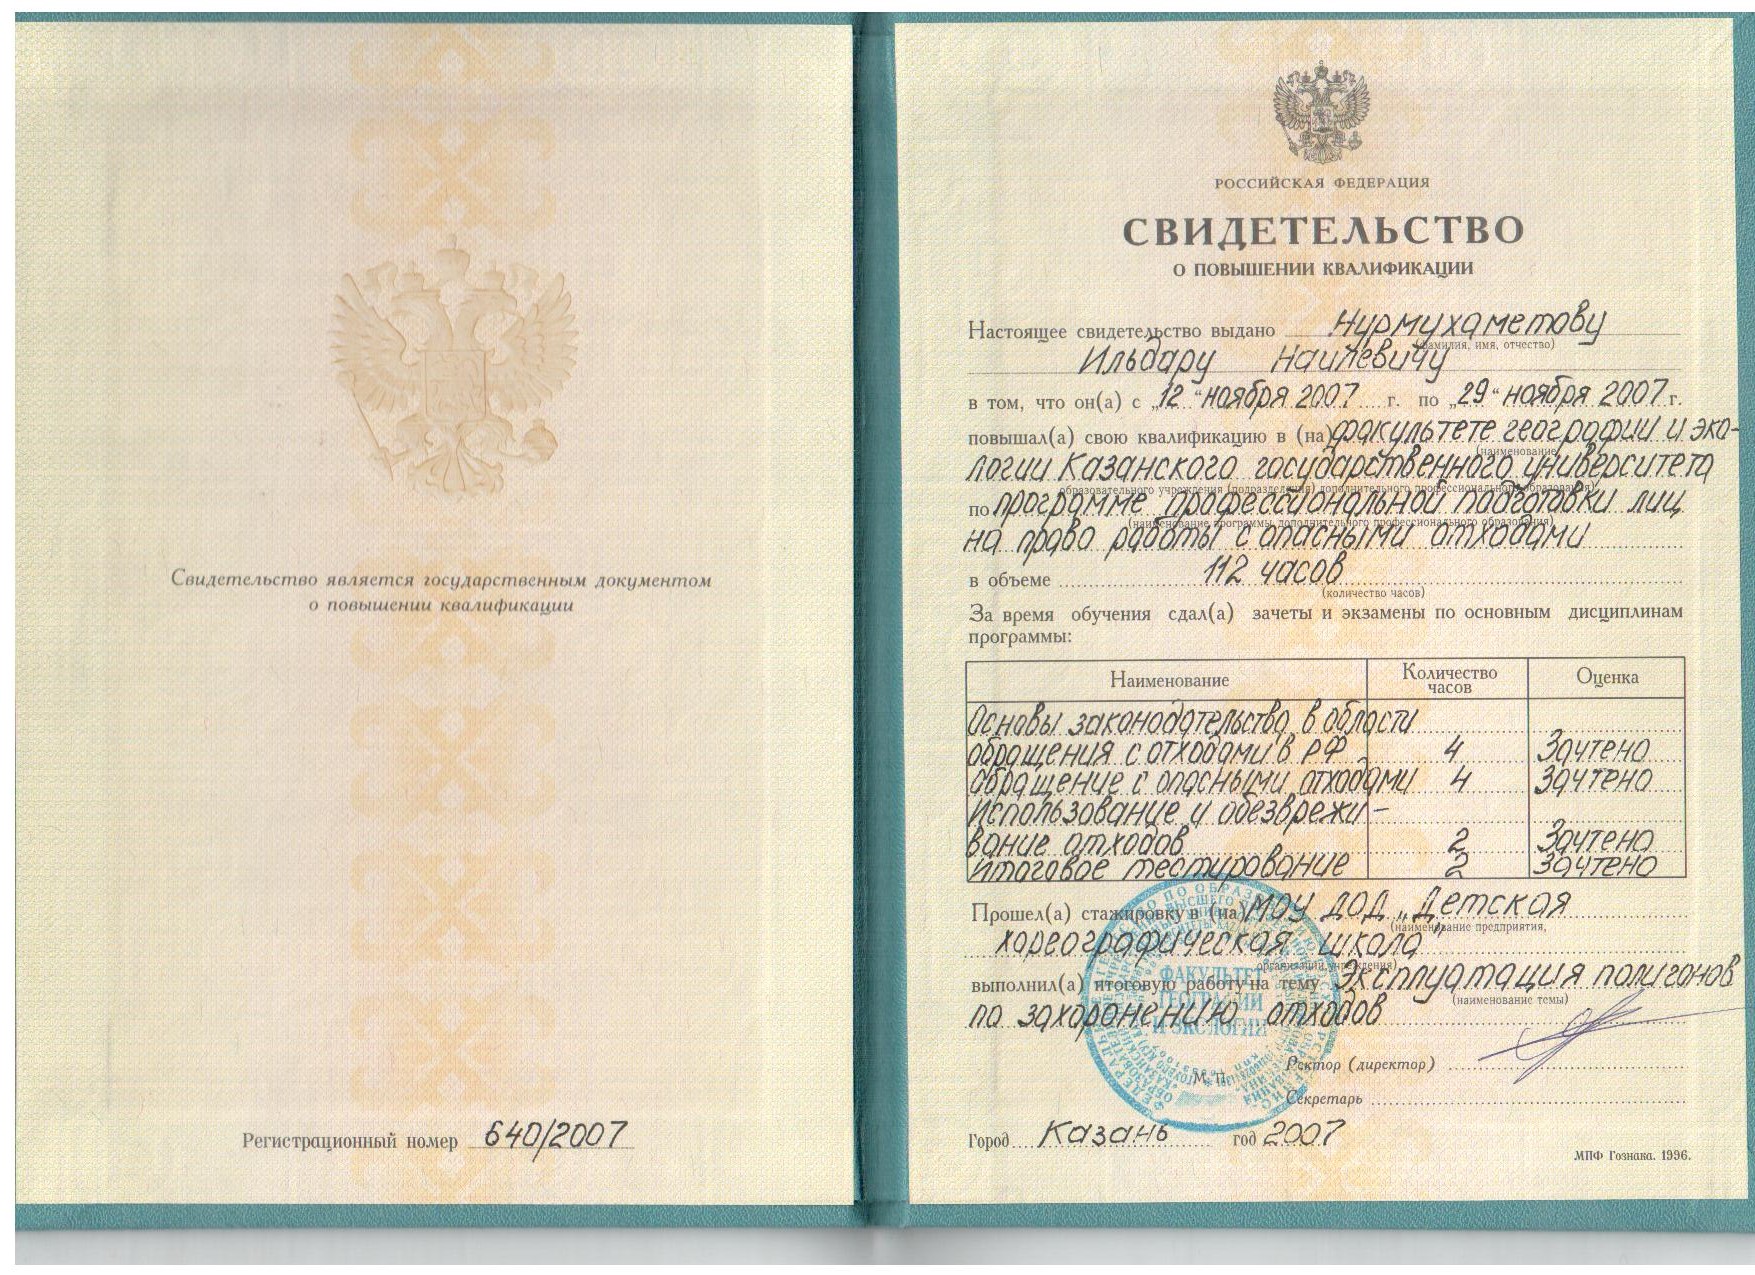 Свидетельство является государственным документом
о повышении квалификации
Регистрационный номер 640/2007
РОССИЙСКАЯ ФЕДЕРАЦИЯ
СВИДЕТЕЛЬСТВО
О ПОВЫШЕНИИ КВАЛИФИКАЦИИ
Настоящее свидетельство выдано Нурмухаметову
(фамилия, имя, отчество)
Ильдару Наилевичу
в том, что он(а) с „12“ ноября 2007 г. по „29“ ноября 2007 г.
повышал(а) свою квалификацию в (на) факультете географии и эко-
(наименование
логии Казанского государственного университета
образовательного учреждения (подразделения) дополнительного профессионального образования)
по программе профессиональной подготовки лиц
(наименование программы дополнительного профессионального образования)
на право работы с опасными отходами
в объеме 112 часов
(количество часов)
За время обучения сдал(а) зачеты и экзамены по основным дисциплинам
программы:
Наименование Количество часов Оценка
Основы законодательство в области
обращения с отходами в РФ 4 Зачтено
обращение с опасными отходами 4 Зачтено
Использование и обезврежи-
вание отходов 2 Зачтено
Итоговое тестирование 2 Зачтено
Прошел(а) стажировку в (на) МОУ ДОД „Детская
(наименование предприятия,
хореографическая школа"
организации, учреждения)
выполнил(а) итоговую работу на тему Эксплуатация полигонов
(наименование темы)
по захоронению отходов
ФАКУЛЬТЕТ
ГЕОГРАФИИ
И ЭКОЛОГИИ
Ректор (директор)
М. П.
Секретарь
Город Казань год 2007
МПФ Гознака. 1996.